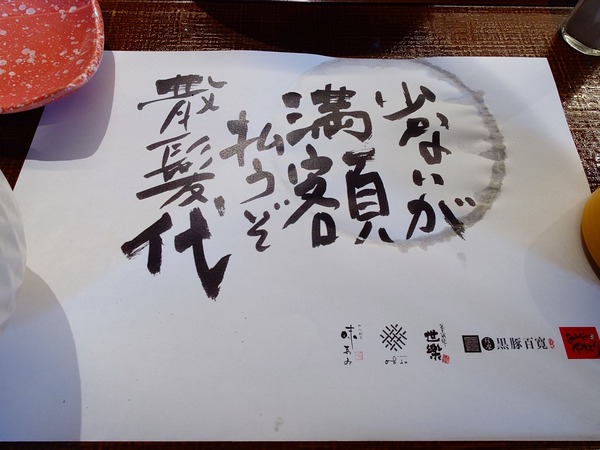 少ないが
満額
払うぞ
散髪代
味
世楽
黒豚百寛